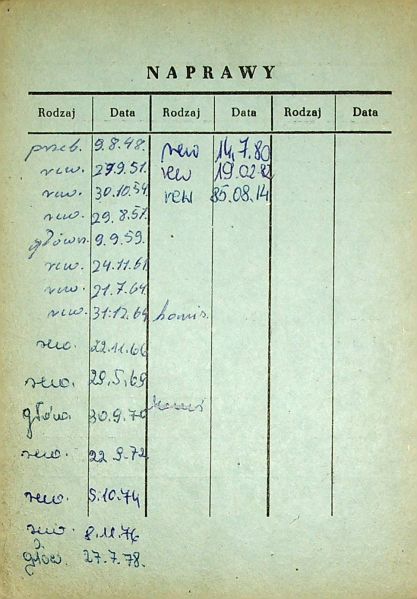 NAPRAWY
Rodzaj Data Rodzaj Data Rodzaj Data
przeb. 9.8.48. rew 14.7.80
rew. 27.9.51. rew 19.02.82
rew. 30.10.54 rew 85.08.14
rew. 29.8.57.
główn. 9.9.59.
rew. 24.11.61
rew. 21.7.64.
rew. 31.12.64
rew. 22.11.66
rew. 29.5.69
główna 30.9.70
rew. 22.9.72
rew. 5.10.74
rew. 8.11.76
głów. 27.7.78.